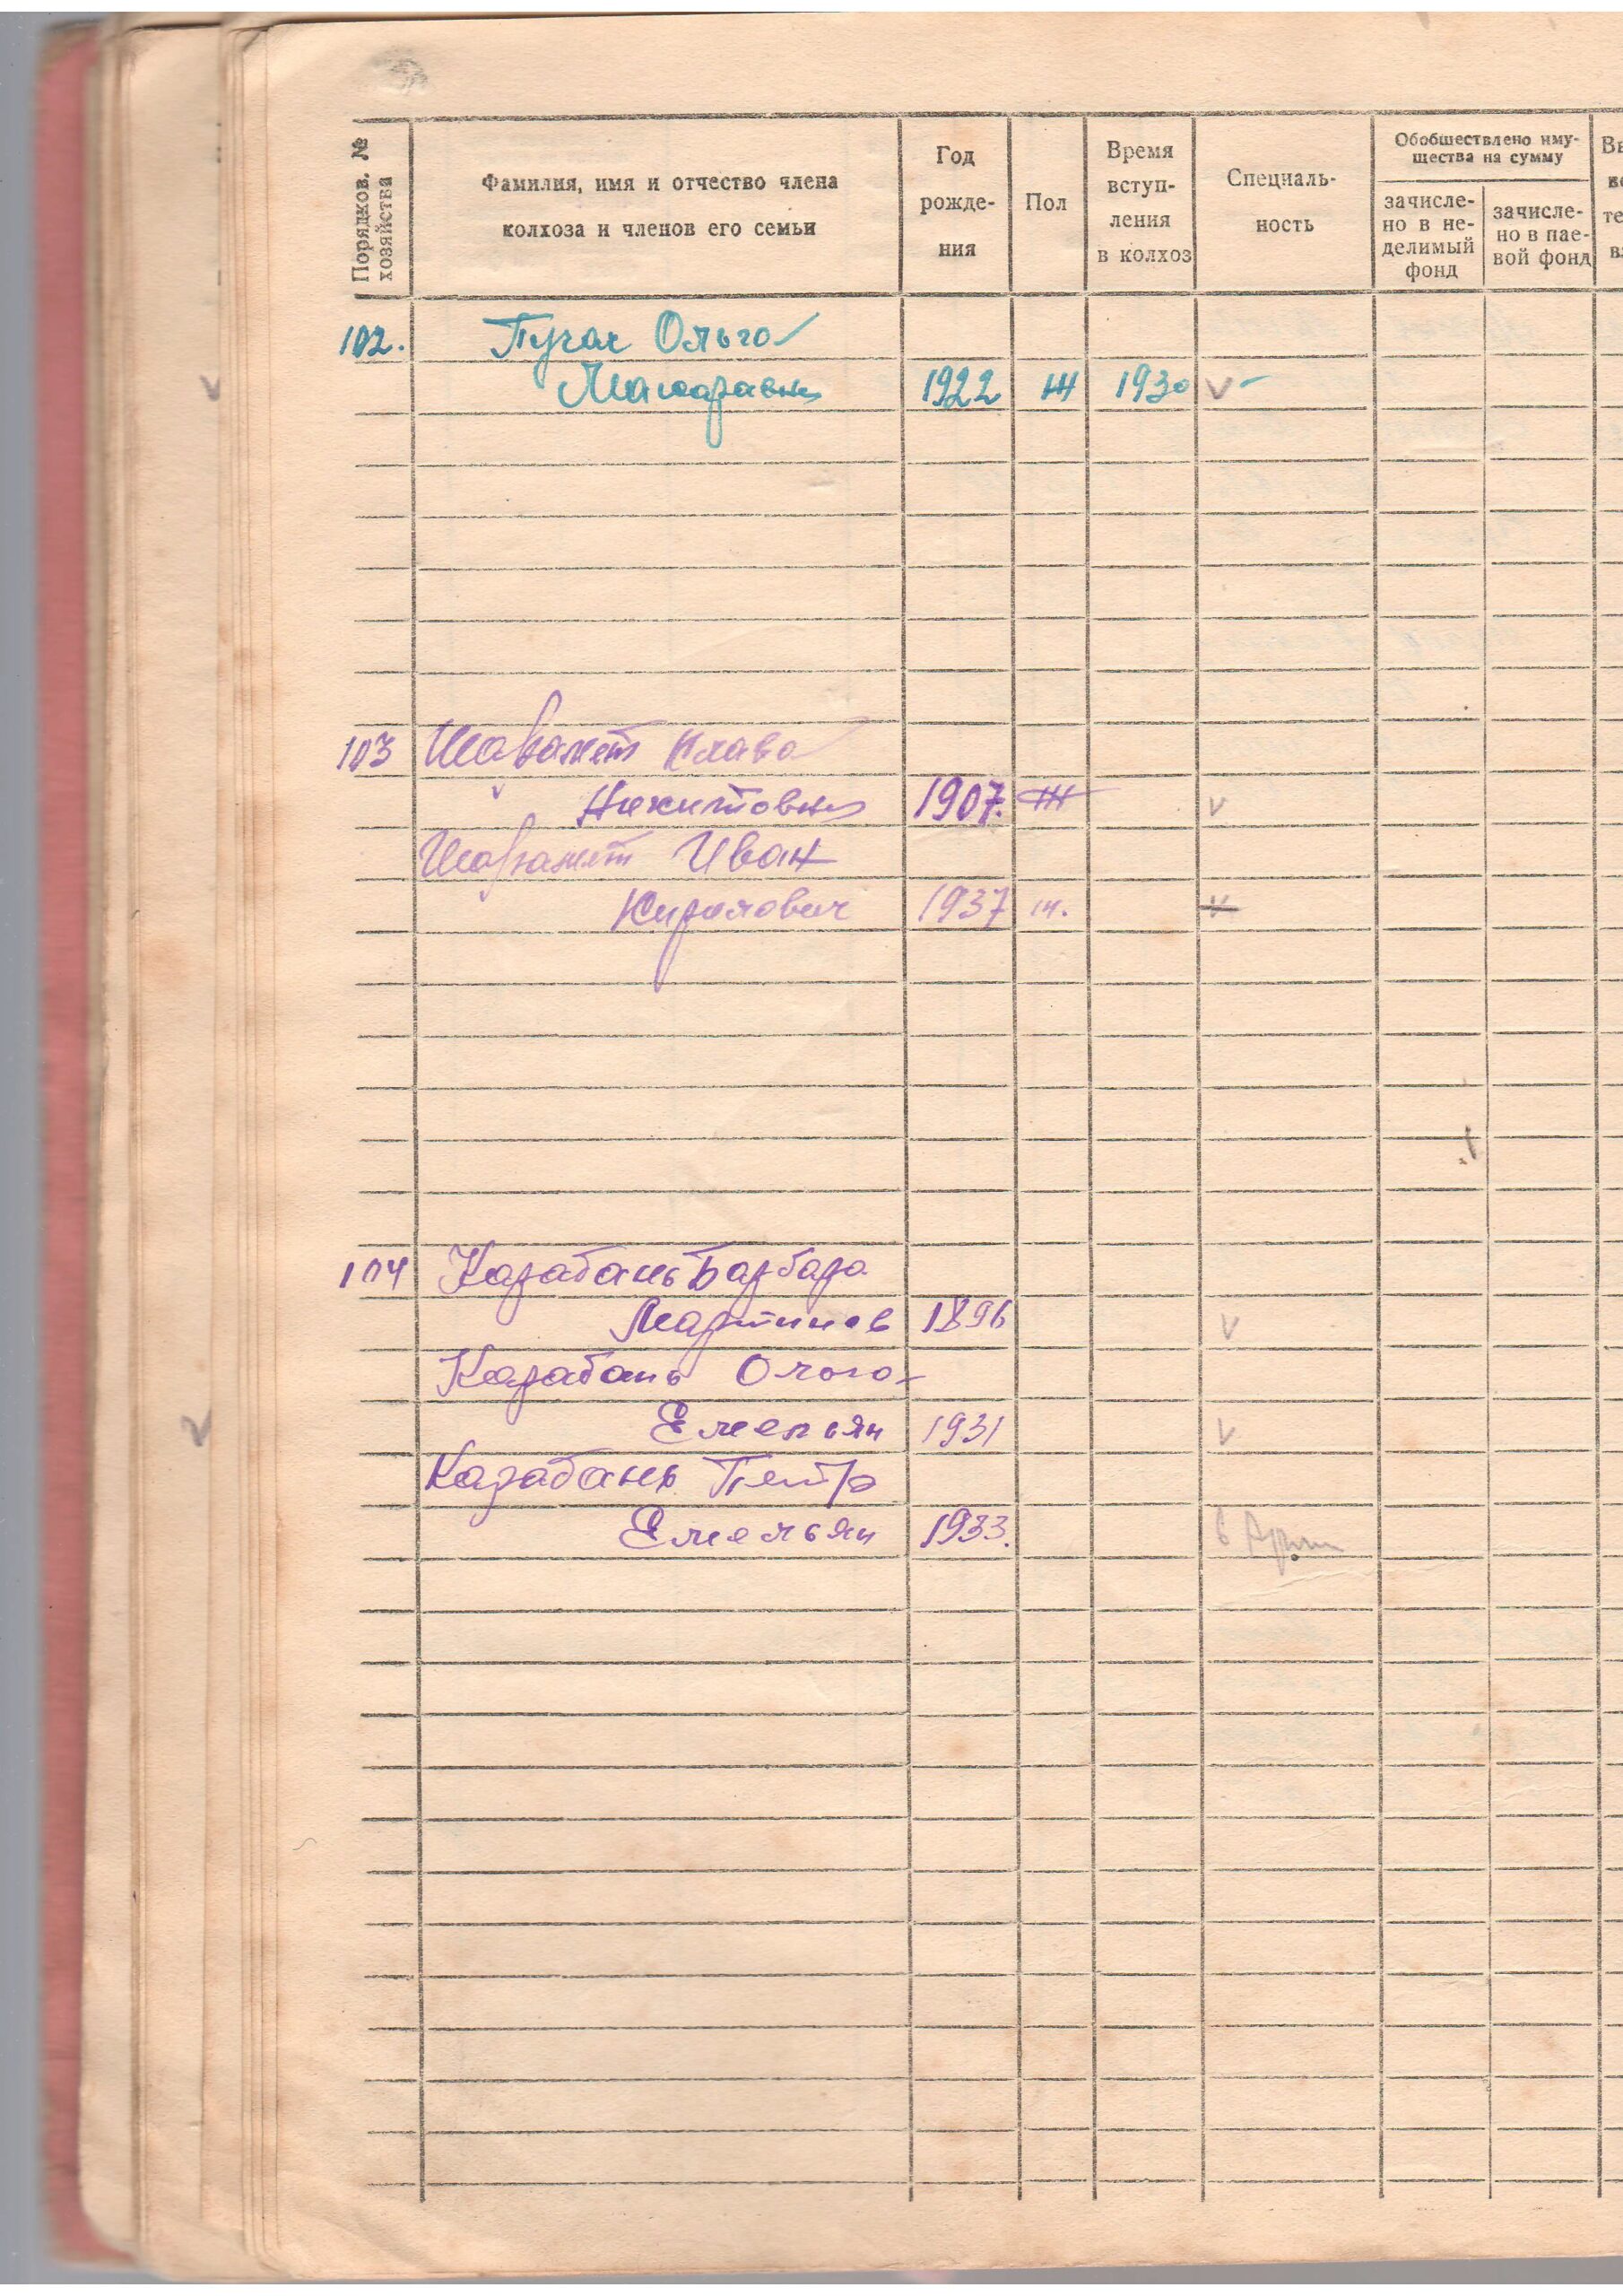 Порядков. № хозяйства
Фамилия, имя и отчество члена
колхоза и членов его семьи
Год
рожде-
ния
Пол
Время
вступ-
ления
в колхоз
Специаль-
ность
Обобществлено иму-
щества на сумму
зачисле-
но в не-
делимый
фонд
зачисле-
но в пае-
вой фонд
102. Пугач Ольга
1922 Ж 1930 V –
103 Клава
Никитовна 1907. Ж V
Иван
Кирилович 1937 м. V
104 Карабань Барбара
Мартинов 1896 V
Карабань Ольга
Емельян 1931 V
Карабань Петр
Емельян 1933. в Арм